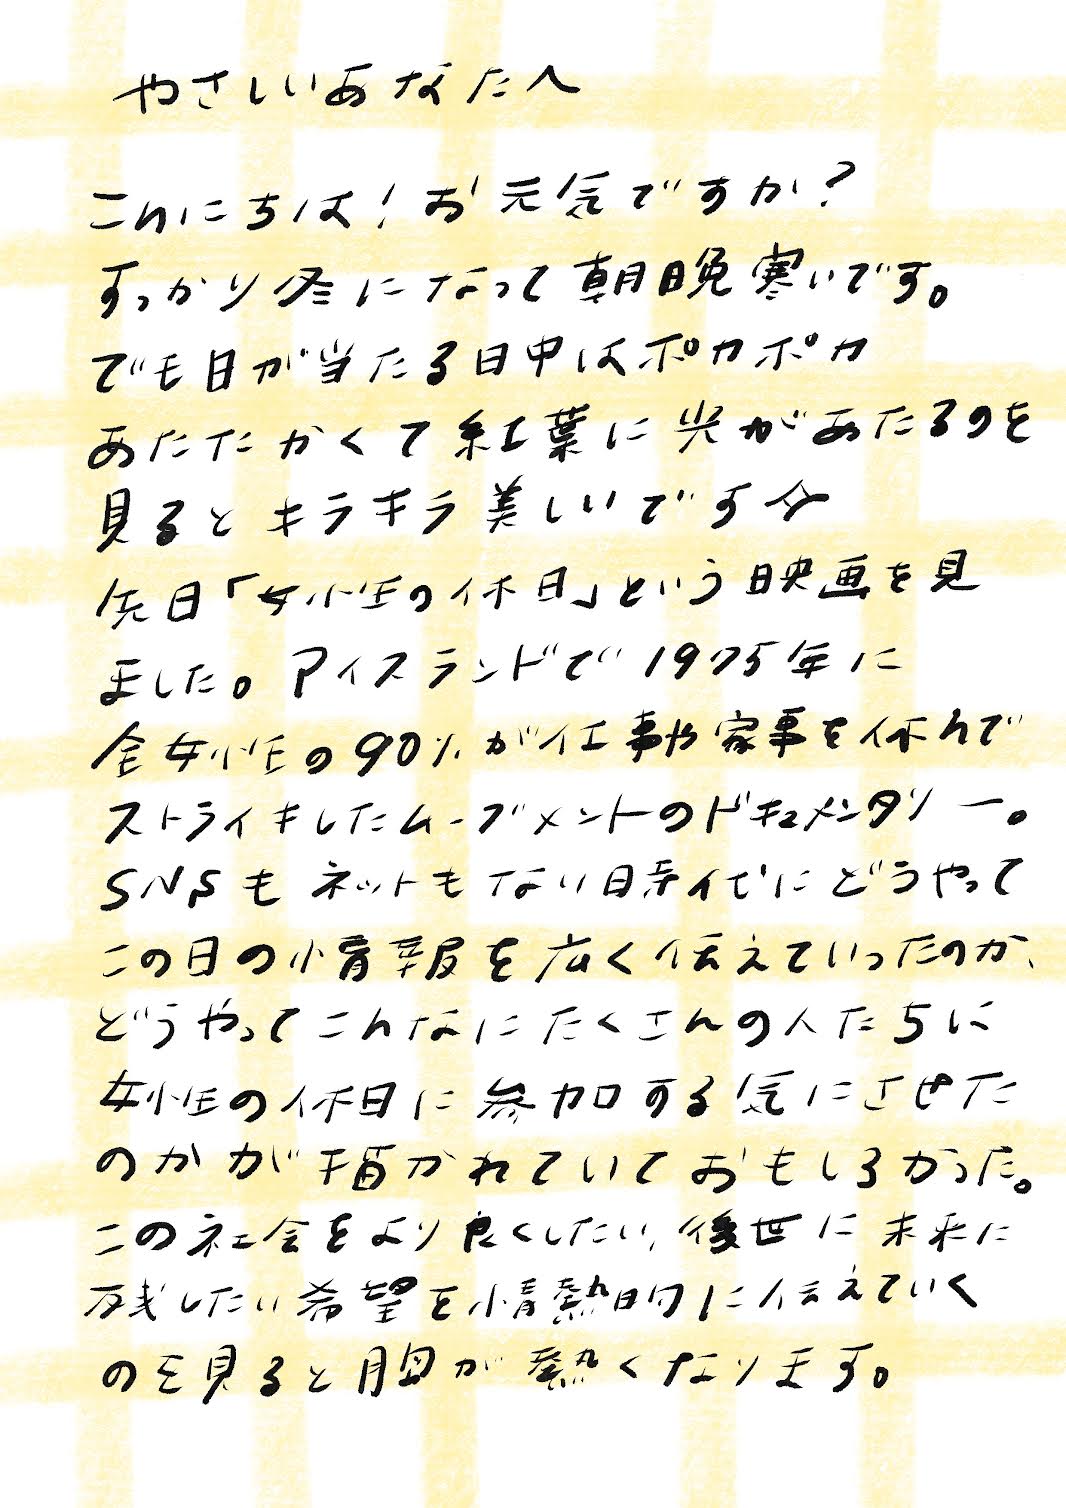 やさしいあなたへ
こんにちは！お元気ですか？
すっかり冬になって朝晩寒いです。
でも日が当たる日中はポカポカ
あたたかくて紅葉に光があたるのを
見るとキラキラ美しいです☆
先日「女性の休日」という映画を見
ました。アイスランドで1975年に
全女性の90%が仕事や家事を休んで
ストライキしたムーブメントのドキュメンタリー。
SNSもネットもない時代にどうやって
この日の情報を広く伝えていったのか、
どうやってこんなにたくさんの人たちに
女性の休日に参加する気にさせた
のかが描かれていておもしろかった。
この社会をより良くしたい、後世に未来に
残したい希望を情熱的に伝えていく
のを見ると胸が熱くなります。